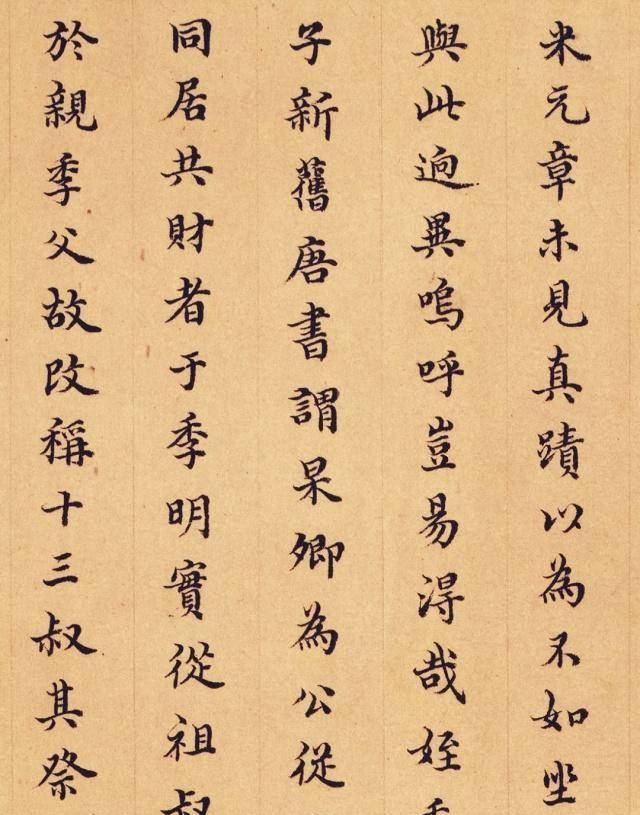 米元章未見真蹟以為不如㘴
與此逈異嗚呼豈易淂哉姪
子新舊唐書謂杲卿為公從
同居共財者于季明實從祖叔
於親季父故改稱十三叔其祭